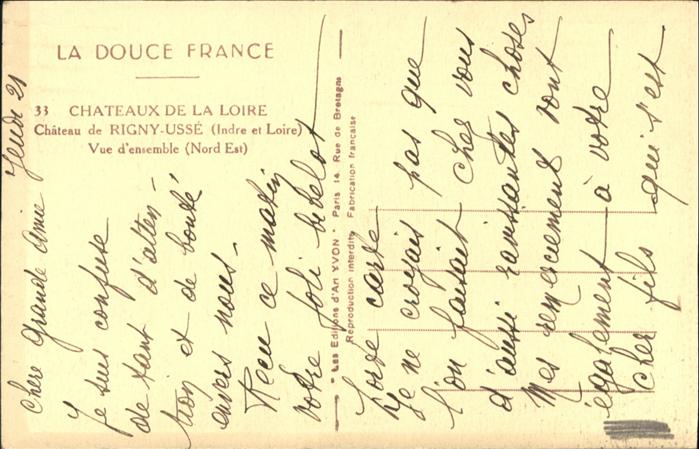 LA DOUCE FRANCE
33 CHATEAUX DE LA LOIRE
Château de RIGNY-USSÉ (Indre et Loire)
Vue d'ensemble (Nord Est)
"Les Editions d'Art YVON" Paris 14, Rue de Bretagne
Reproduction interdite Fabrication française
Jeudi 21
Chère Grande Amie
Je suis confuse
de tant d'atten-
tion et de bonté
envers nous -
Recu ce matin
votre joli bibelot
porte carte
Je ne croyais pas que
l'on faisait chez vous
d'aussi ravissantes choses
Mes remerciements vont
également à votre
cher fils qui s'est